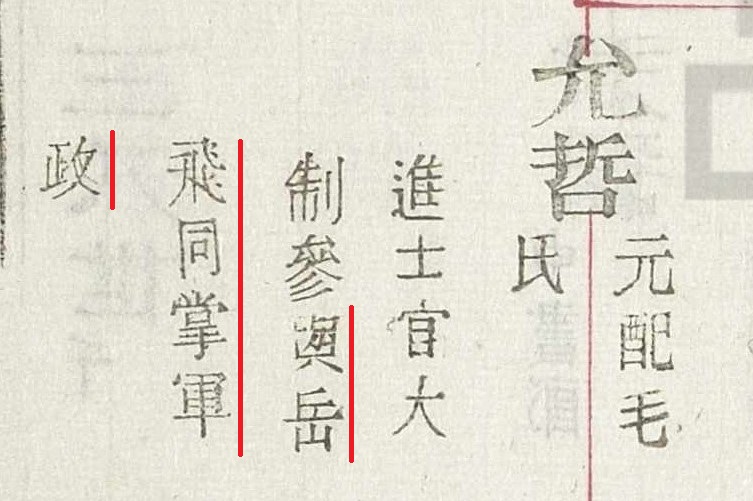 允哲
元配毛
氏
進士官大
制參與岳
飛同掌軍
政